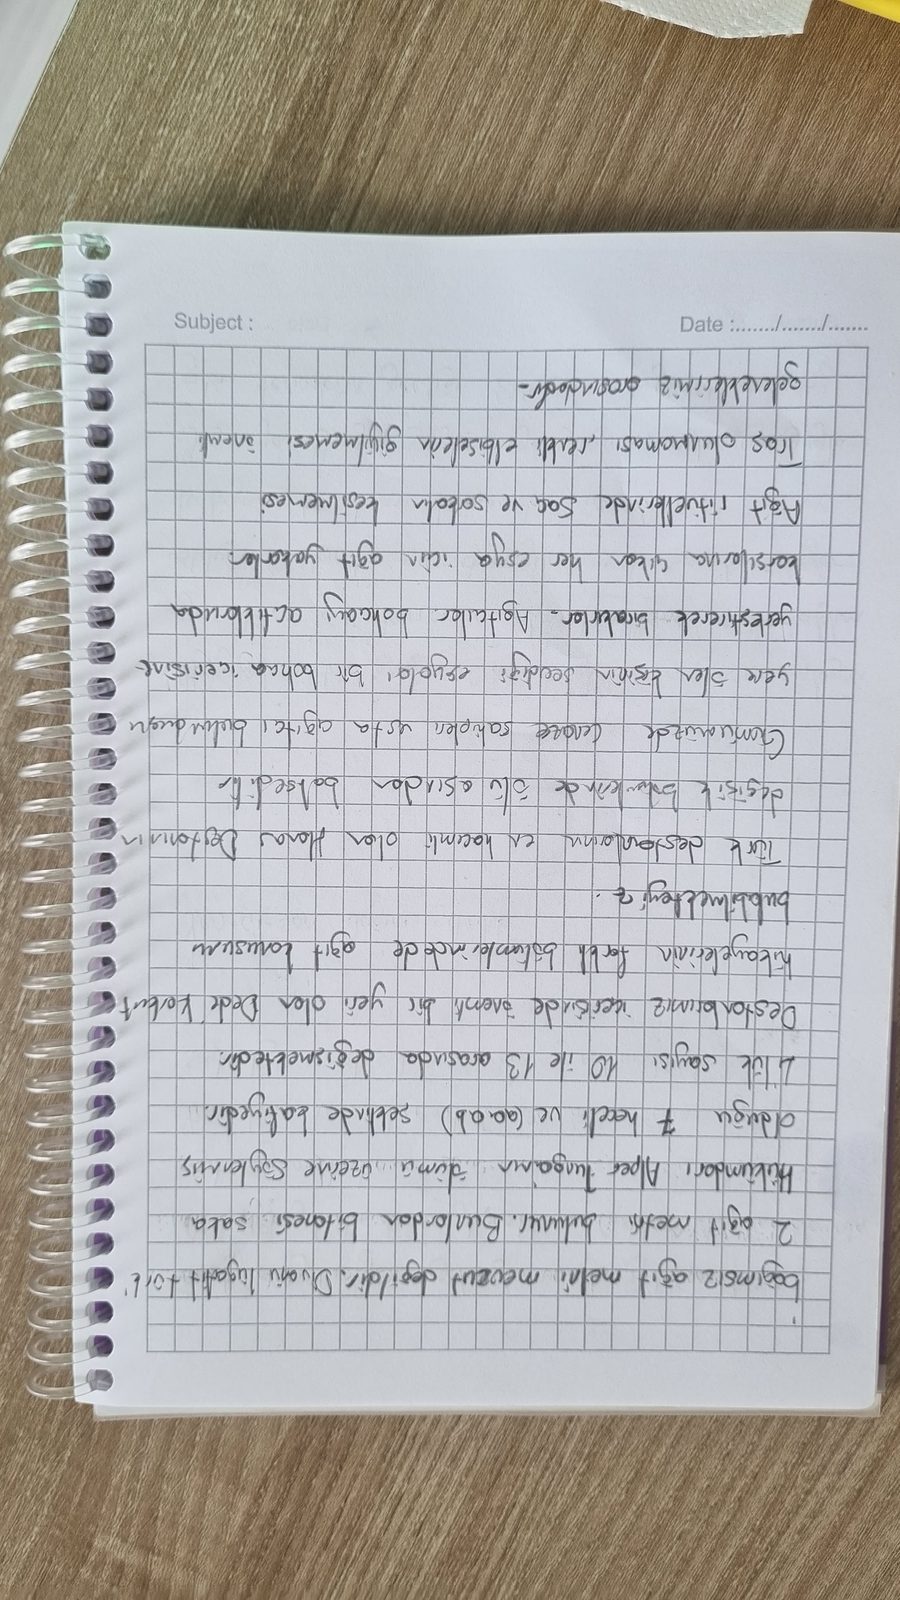 Subject :
Date :......../......./.......
bağımsız ağıt metni mevcut değildir. Divanü lügatit türk
2 ağıt metni bulunur. Bunlardan bitanesi saka
Hükümdarı Alper Tunganın ölümü üzerine Söylenmiş
olduğu 7 heceli ve (aaab) şeklinde kafiyedir.
4'lük sayısı 10 ile 13 arasında değişmektedir.
Destanlarımız içerisinde önemli bir yeri olan Dede Korkut
hikayelerinin farklı bölümlerindede ağıt konusunu
bulabilmekteyiz.
Türk destanlarının en hacimli olan Manas Destanının
değişik bölümlerinde ölü aşından bahsedilir
Günümüzde cenaze sahipleri usta ağıtçı bulunduğu
yere ölen kişinin sevdiği eşyaları bir bohça içerisine
yerleştirerek bırakırlar. Ağıtçılar bohçayı açtıklarında
karşılarına çıkan her eşya için ağıt yakarlar.
Ağıt ritüellerinde saç ve sakalın kesilmemesi
Traş olunmaması, renkli elbiselerin giyilmemesi önemli
geleneklerimiz arasındadır.